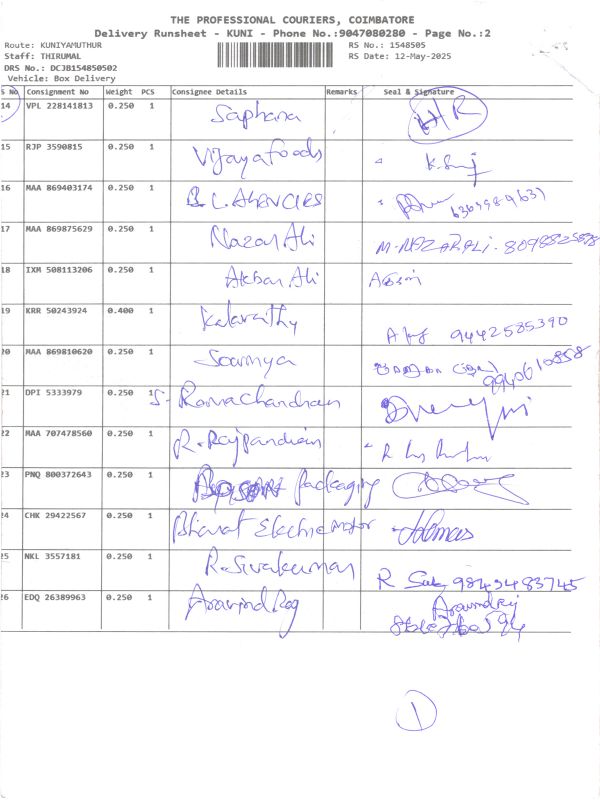 THE PROFESSIONAL COURIERS, COIMBATORE
Delivery Runsheet - KUNI - Phone No.:9047080280 - Page No.:2
Route: KUNIYAMUTHUR RS No.: 1548505
Staff: THIRUMAL RS Date: 12-May-2025
DRS No.: DCJB154850502
Vehicle: Box Delivery
S No Consignment No Weight PCS Consignee Details Remarks Seal & Signature
14 VPL 228141813 0.250 1 Saphana HR
15 RJP 3590815 0.250 1 Vijaya foods
16 MAA 869403174 0.250 1 B.L. Agencies
17 MAA 869875629 0.250 1 Nazar Ali M-NAZARALI-
18 IXM 508113206 0.250 1 Akbar Ali
19 KRR 50243924 0.400 1 Kalavathy 9442585390
20 MAA 869810620 0.250 1 Soumya
9940610858
21 DPI 5333979 0.250 1 S. Ramachandran
22 MAA 707478560 0.250 1 R. Rajpandian
23 PNQ 800372643 0.250 1 Packaging
24 CHK 29422567 0.250 1 Bharat Electric motor
25 NKL 3557181 0.250 1 R. Sivakumar
R 9843483745
26 EDQ 26389963 0.250 1 Aravind Raj Aravindraj
1